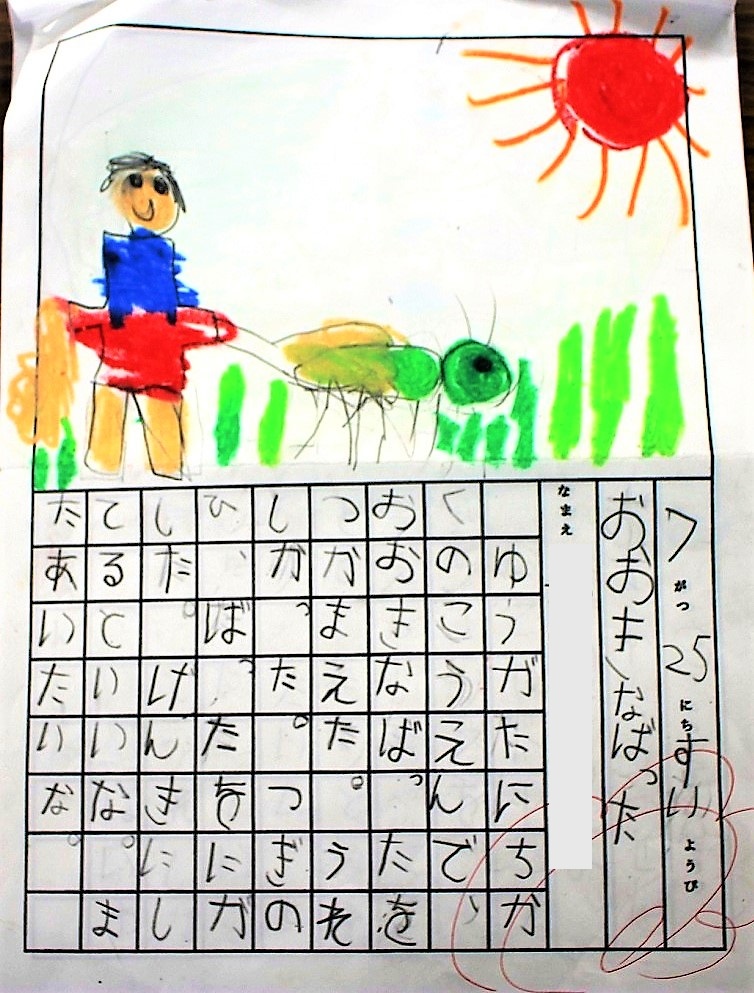 7がつ25にちすいようび
おおきなばった
なまえ
ゆうがたにちか
くのこうえんで、
おおきなばったを
つかまえた。うれ
しかった。つぎの
ひ、ばったをにが
した。げんきにし
てるといいな。ま
たあいたいな。